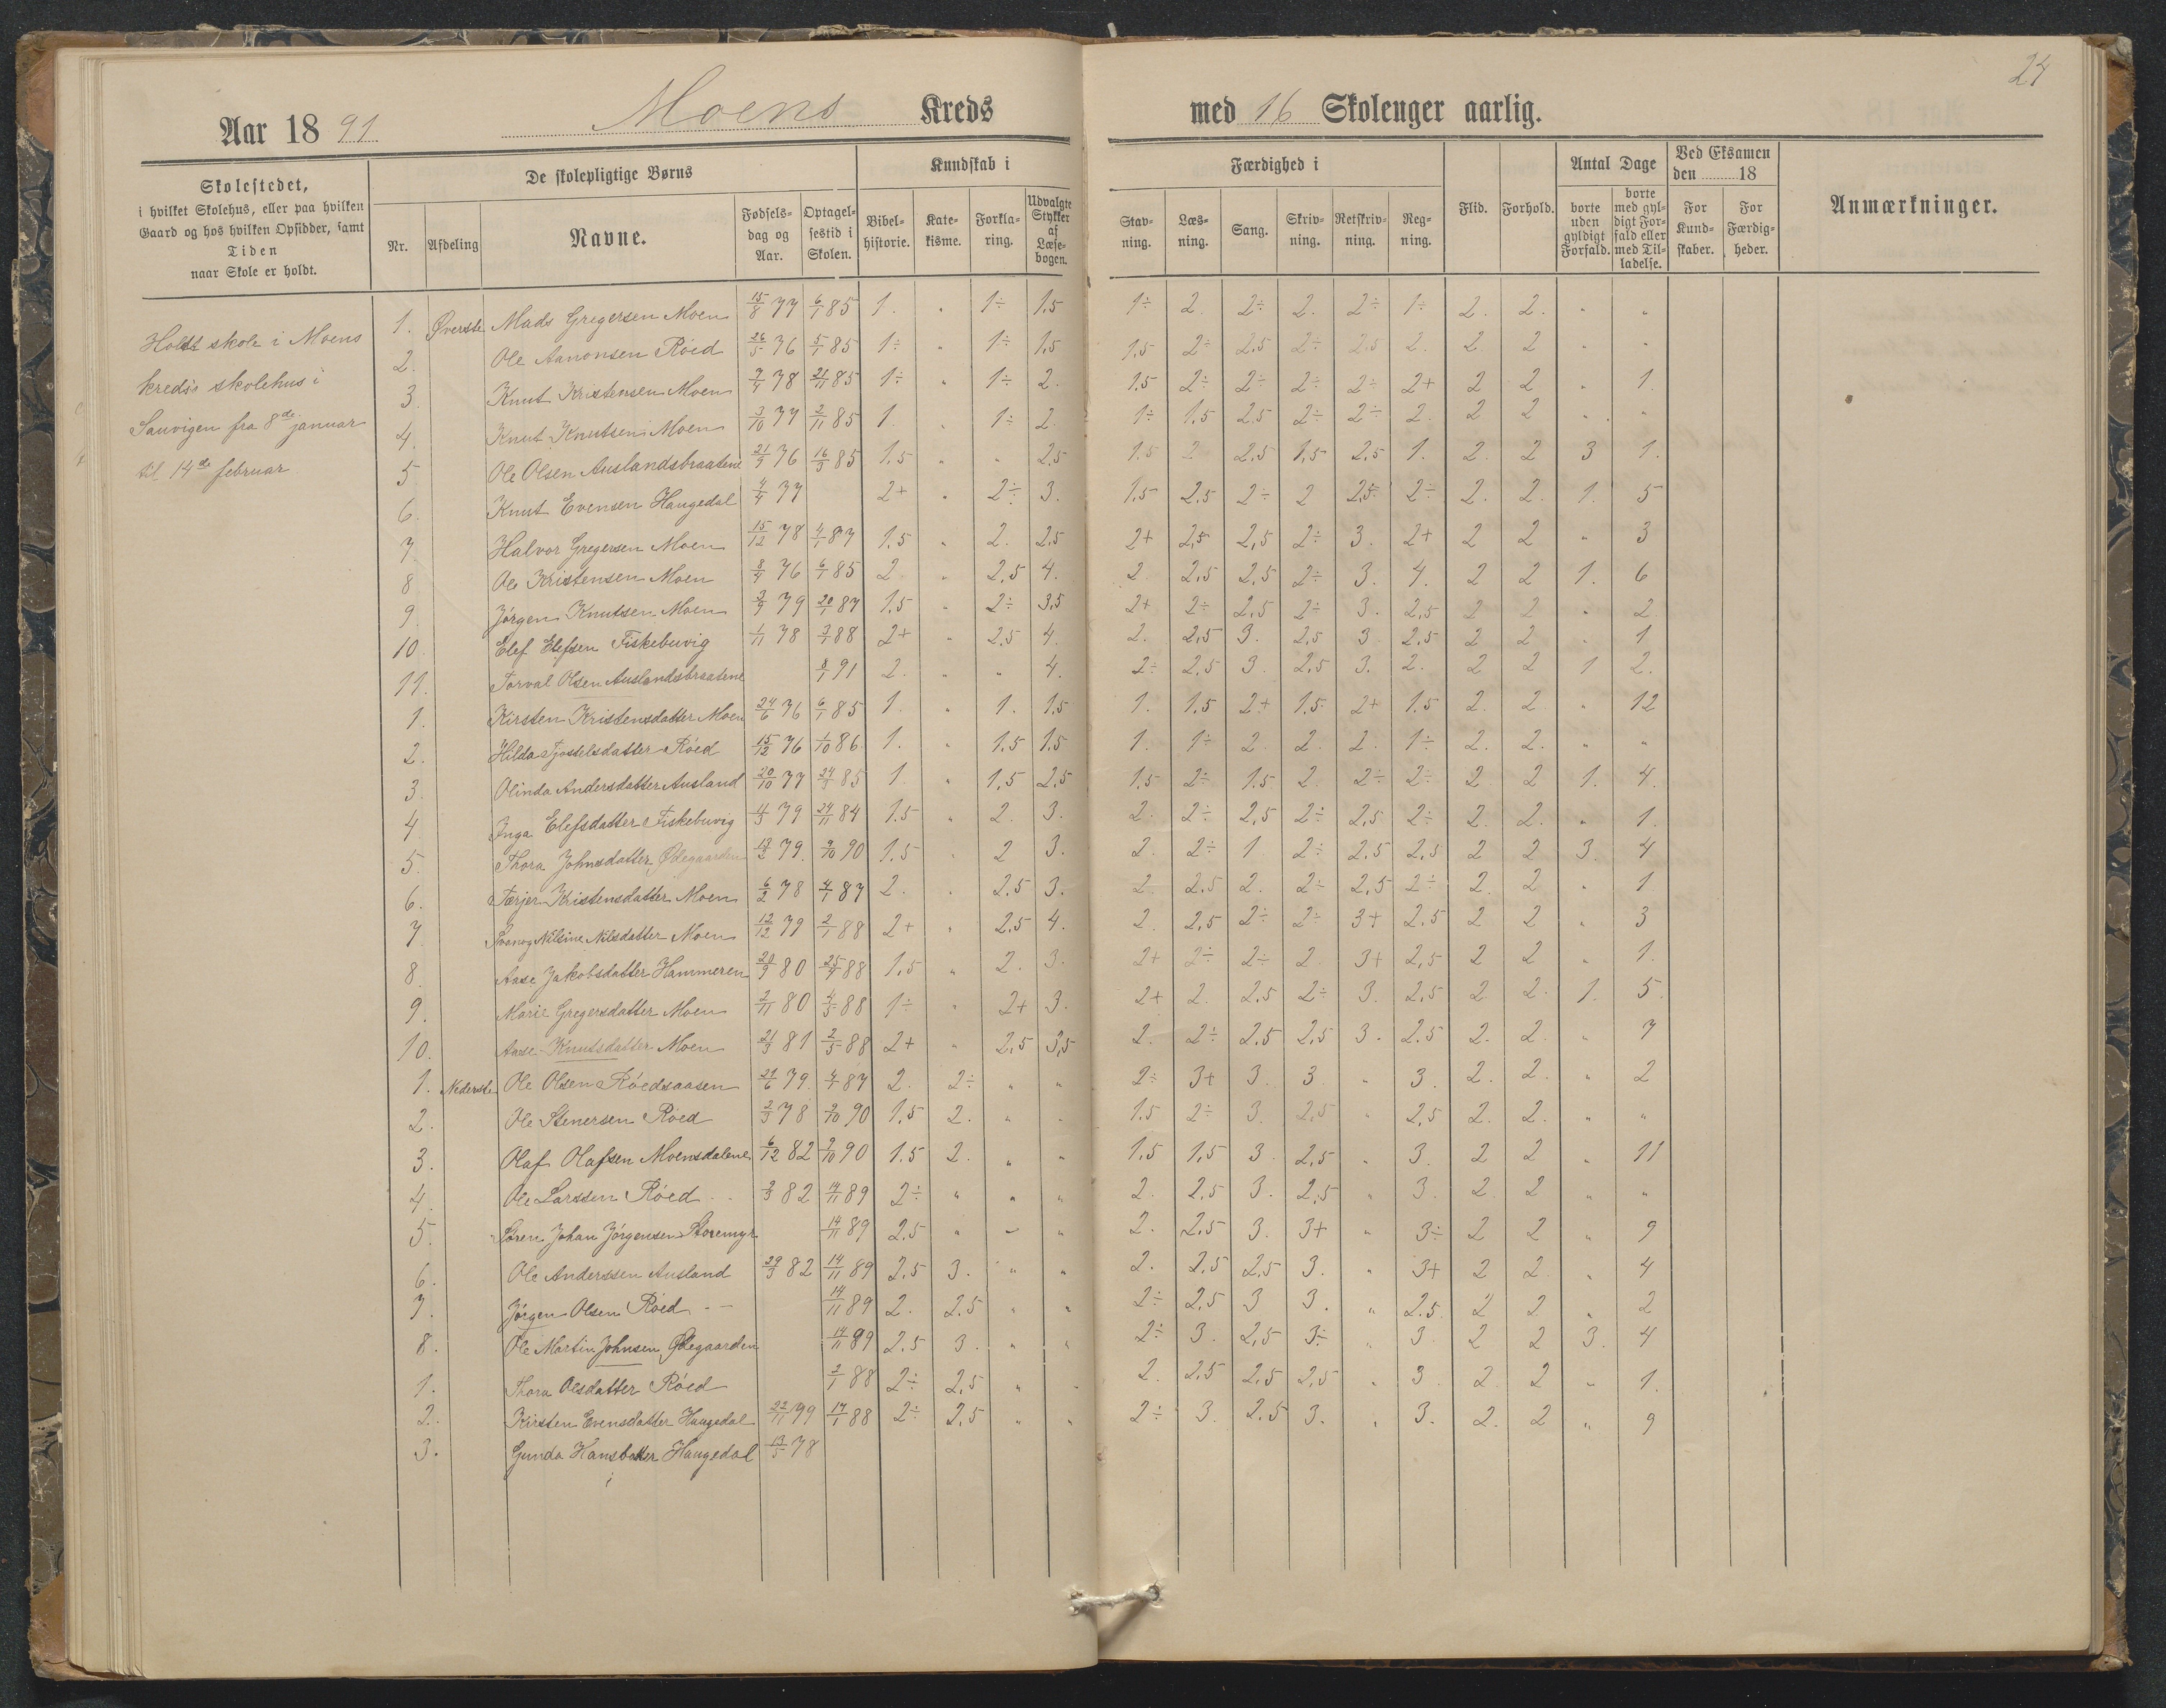 24
Aar 1891 Moens Kreds med 16 Skoleuger aarlig.
Skolestedet, i hvilket Skolehus, eller paa hvilken Gaard og hos hvilken Opsidder, samt Tiden naar Skole er holdt. | De skolepligtige Børns | Kundskab i | Færdighed i | Flid. | Forhold. | Antal Dage | Ved Eksamen den 18 | Anmærkninger.
Nr. | Afdeling | Navne. | Fødselsdag og Aar. | Optagelsestid i Skolen. | Bibelhistorie. | Katekisme. | Forklaring. | Udvalgte Stykker af Læsebogen. | Stavning. | Læsning. | Sang. | Skrivning. | Retskrivning. | Regning. | borte uden gyldigt Forfald. | borte med gyldigt Forfald eller med Tilladelse. | For Kundskaber. | For Færdigheder.
Holdt skole i Moens
kreds's skolehus i
Sauvigen fra 8de januar
til 14de februar
1. Øverste Mads Gregersen Moen 15/8 77 6/1 85 1. " 1÷ 1.5 1÷ 2. 2÷ 2. 2÷ 1÷ 2. 2. " "
2. Ole Aanonsen Röed 26/5 76 5/1 85 1÷ " 1÷ 1,5 1,5 2÷ 2,5 2÷ 2,5 2. 2. 2 " "
3. Knut Kristensen Moen 9/4 78 21/11 85 1÷ " 1÷ 2. 1.5 2÷ 2÷ 2÷ 2÷ 2+ 2 2 " 1.
4. Knut Knutsen Moen 3/10 77 2/11 85 1. " 1÷ 2. 1÷ 1,5 2,5 2÷ 2÷ 2. 2 2 " "
5 Ole Olsen Auslandsbraatene 21/9 76 16/9 85 1,5 " " 2,5 1.5 2 2,5 1,5 2,5 1. 2. 2 3 1.
6. Knut Evensen Haugedal 4/4 77 2+ " 2÷ 3. 1,5 2,5 2÷ 2 2,5 2÷ 2. 2. 1. 5
7. Halvor Gregersen Moen 15/12 78 4/1 87 1,5 " 2. 2,5 2+ 2,5 2,5 2÷ 3. 2+ 2 2 " 3
8 Ole Kristensen Moen 8/4 76 6/1 85 2 " 2,5 4. 2. 2,5 2,5 2÷ 3. 4. 2 2 1. 6
9. Jörgen Knutsen Moen 3/9 79 20/1 87 1,5 " 2÷ 3,5 2+ 2÷ 2,5 2÷ 3. 2,5 2 2 " 2
10. Elef Elefsen Fiskebuvig 1/11 78 3/1 88 2+ " 2.5 4. 2. 2,5 3. 2,5 3 2,5 2 2 " 1
11. Torval Olsen Auslandsbraatene 8/1 91 2. " " 4. 2÷ 2,5 3. 2,5 3. 2. 2 2 1 2.
1. Kirsten Kristensdatter Moen 24/6 76 6/1 85 1. " 1. 1,5 1. 1.5 2+ 1.5 2+ 1.5 2. 2 " 12
2. Hilda Tjostelsdatter Röed 15/12 76 1/10 86 1. " 1.5 1.5 1. 1÷ 2 2. 2. 1÷ 2. 2. " "
3. Olinda Andersdatter Ausland 20/10 77 24/9 85 1. " 1,5 2,5 1.5 2÷ 1.5 2 2÷ 2÷ 2 2 1. 4.
4 Inga Elefsdatter Fiskebuvig 4/3 79 24/11 84 1.5 " 2. 3. 2. 2÷ 2,5 2÷ 2,5 2÷ 2. 2. " 1.
5. Thora Johnsdatter Ødegaarden 13/2 79. 9/10 90 1,5 " 2 3. 2. 2÷ 1 2÷ 2.5 2,5 2 2 3. 4
6. Tærjer Kristensdatter Moen 6/2 78 4/1 87 2. " 2.5 3. 2. 2,5 2. 2÷ 2,5 2÷ 2. 2 " 1
7 Svanog Nilsine Nilsdatter Moen 12/12 79 2/1 88 2+ " 2,5 4. 2. 2,5 2÷ 2÷ 3+ 2.5 2 2 " 3
8. Aase Jakobsdatter Hammeren 20/9 80 25/4 88 1,5 " 2. 3. 2+ 2÷ 2÷ 2. 3+ 2,5 2 2 " 1.
9. Marie Gregersdatter Moen 2/11 80 4/5 88 1÷ " 2+ 3. 2+ 2. 2.5 2÷ 3. 2.5 2 2. 1. 5.
10. Aase Knutsdatter Moen 21/3 81 2/5 88 2+ " 2,5 3,5 2. 2÷ 2.5 2,5 3. 2.5 2. 2. " 7
1. Nederste Ole Olsen Röedsaasen 21/6 79. 4/1 87 2. 2÷ " " 2÷ 3+ 3. 3. " 3. 2. 2. " 2
2. Ole Stenersen Röed 2/3 78 2/10 90 1,5 2. " " 1.5 2÷ 3. 2,5 " 2,5 2. 2. " "
3. Olaf Olafsen Moensdalene 6/12 82 2/10 90 1.5 2. " " 1.5 1,5 3. 2,5 " 3. 2 2 " 11
4. Ole Larssen Röed 2/3 82 14/11 89 2÷ " " " 2. 2,5 3. 2,5 " 3. 2 2 " "
5. Sören Johan Jörgensen Storemyr 14/11 89 2.5 " " " 2. 2,5 3. 3+ " 3÷ 2 2 " 9
6. Ole Anderssen Ausland 29/3 82 14/11 89 2.5 3. " " 2. 2.5 2,5 3. " 3+ 2 2. " 4
7. Jörgen Olsen Röed 14/11 89 2. 2.5 " " 2÷ 2,5 3 3. " 2.5 2 2 " 2
8. Ole Martin Johnsen Ødegaarden 14/11 89 2.5 3. " " 2÷ 3. 2,5 3÷ " 3 2 2 3. 4
1. Thora Olsdatter Röed 2/1 88 2÷ 2,5 " " 2. 2.5 2,5 2,5 " 3 2. 2 " 1.
2. Kirsten Evensdatter Haugedal 22/11 79 17/1 88 2÷ 2,5 " " 2÷ 3. 2.5 3. " 3. 2. 2 " 9
3. Gunda Hansdatter Haugedal 13/5 78